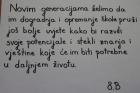 Novim generacijama želimo da
im dogradnja i opremanje škole pruži
još bolje uvjete kako bi razvili
svoje potencijale i stekli znanja i
vještine koje će im biti potrebne
u daljnjem životu.
8.B